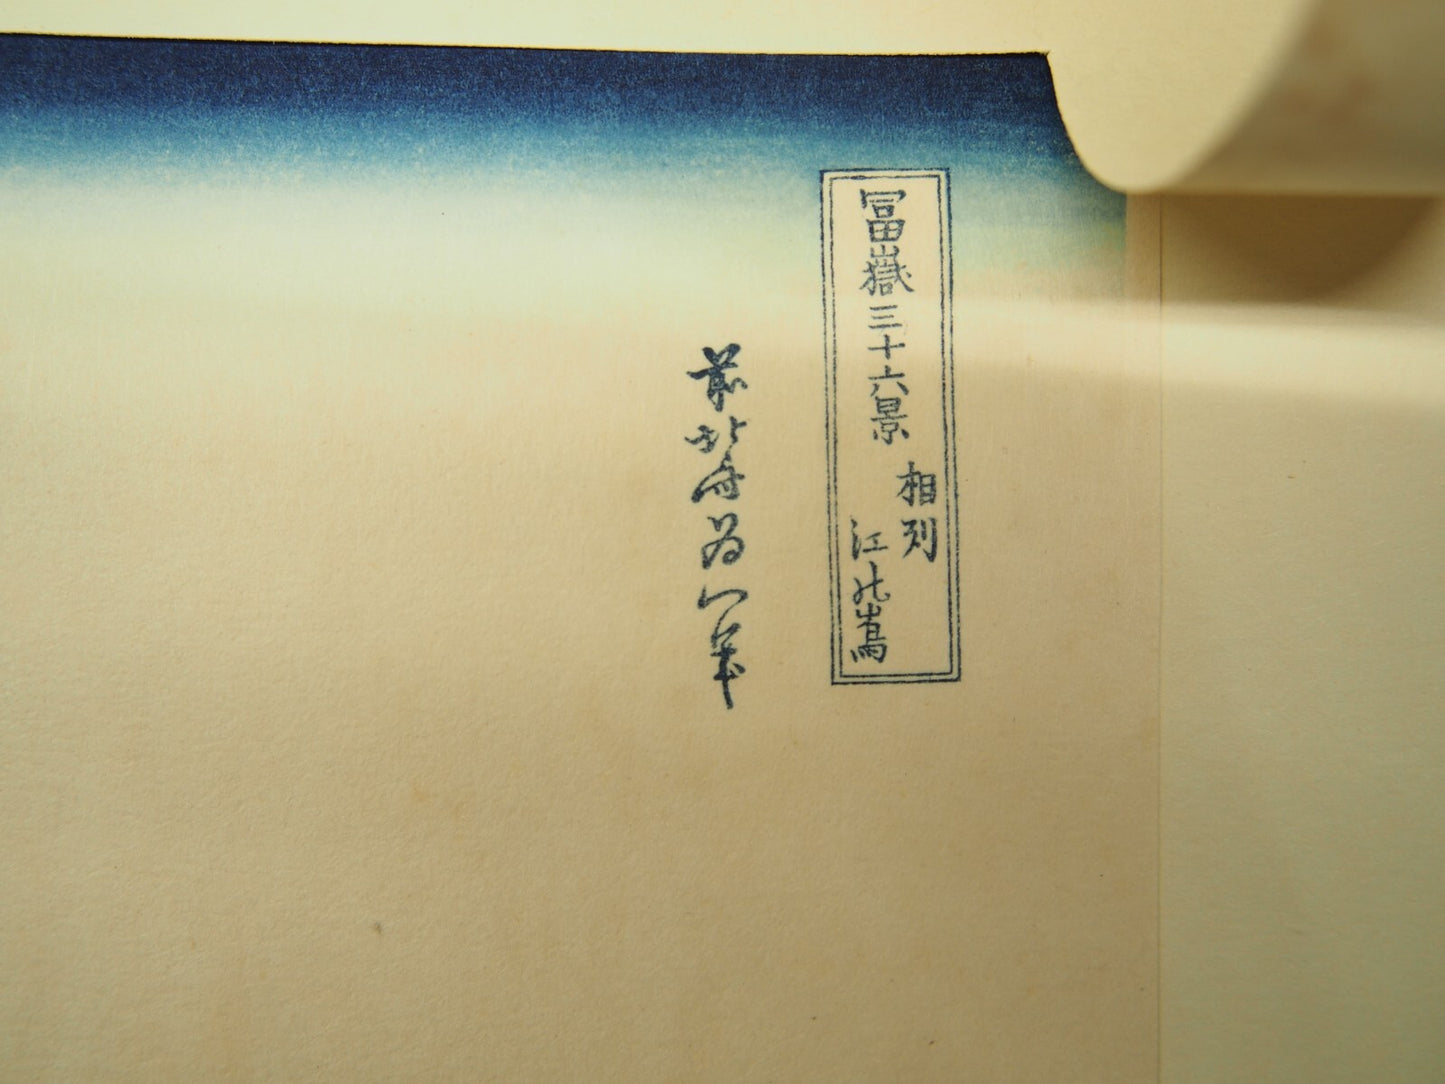 冨嶽三十六景
相刕
江の嶌
前北斎為一筆